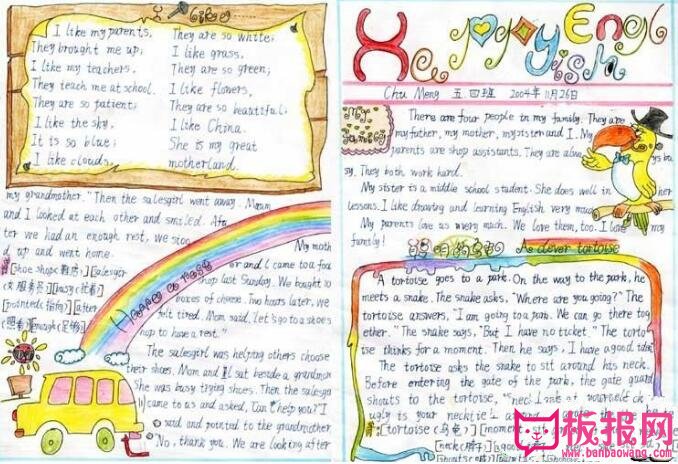 I like
I like my parents,
They brought me up;
I like my teachers,
They teach me at school.
They are so patient;
I like the sky,
It is so blue;
I like clouds,
They are so white;
I like grass,
They are so green;
I like flowers,
They are so beautiful;
I like China.
She is my great
motherland.
my grandmother." Then the salesgirl went away. Mom
and I looked at each other and smiled. Af
ter we had an enough rest, we stoo
d up and went home.
Have a rest
My moth
er and I came to a foo
shop last Sunday. We bought
boxes of cheese. Two hours later, we
felt tired. Mom said, let's go to a shoes
shop to have a rest."
The salesgirl was helping others choose
their shoes. Mom and I sat beside a grandmom
She was busy trying shoes. Then the salesgirl
came to us and asked, Can I help you?" I
said and pointed to the grandmother
"No, thank you. We are looking after
Happy English
Chu Meng 五四班 2004年11月26日
My family
There are four people in my family. They are
my father, my mother, my sister and I. My
parents are shop assistants. They are alway
s busy. They both work hard.
My sister is a middle school student. She does well in her
lessons. I like drawing and learning English very much.
My parents love us very much. We love them, too. I love my
family!
聪明的乌龟 A clever tortoise
A tortoise goes to a park. On the way to the park, he
meets a snake. The snake asks, "Where are you going?" The
tortoise answers, "I am going to a park. We can go there tog
ether." The snake says, "But I have no ticket." The torto
ise thinks for a moment. Then he says, I have a good idea.
The tortoise asks the snake to sit around his neck.
Before entering the gate of the park, the guard
shouts to the tortoise, "
ugly is your necktie
板报网
www.banbaowang.com